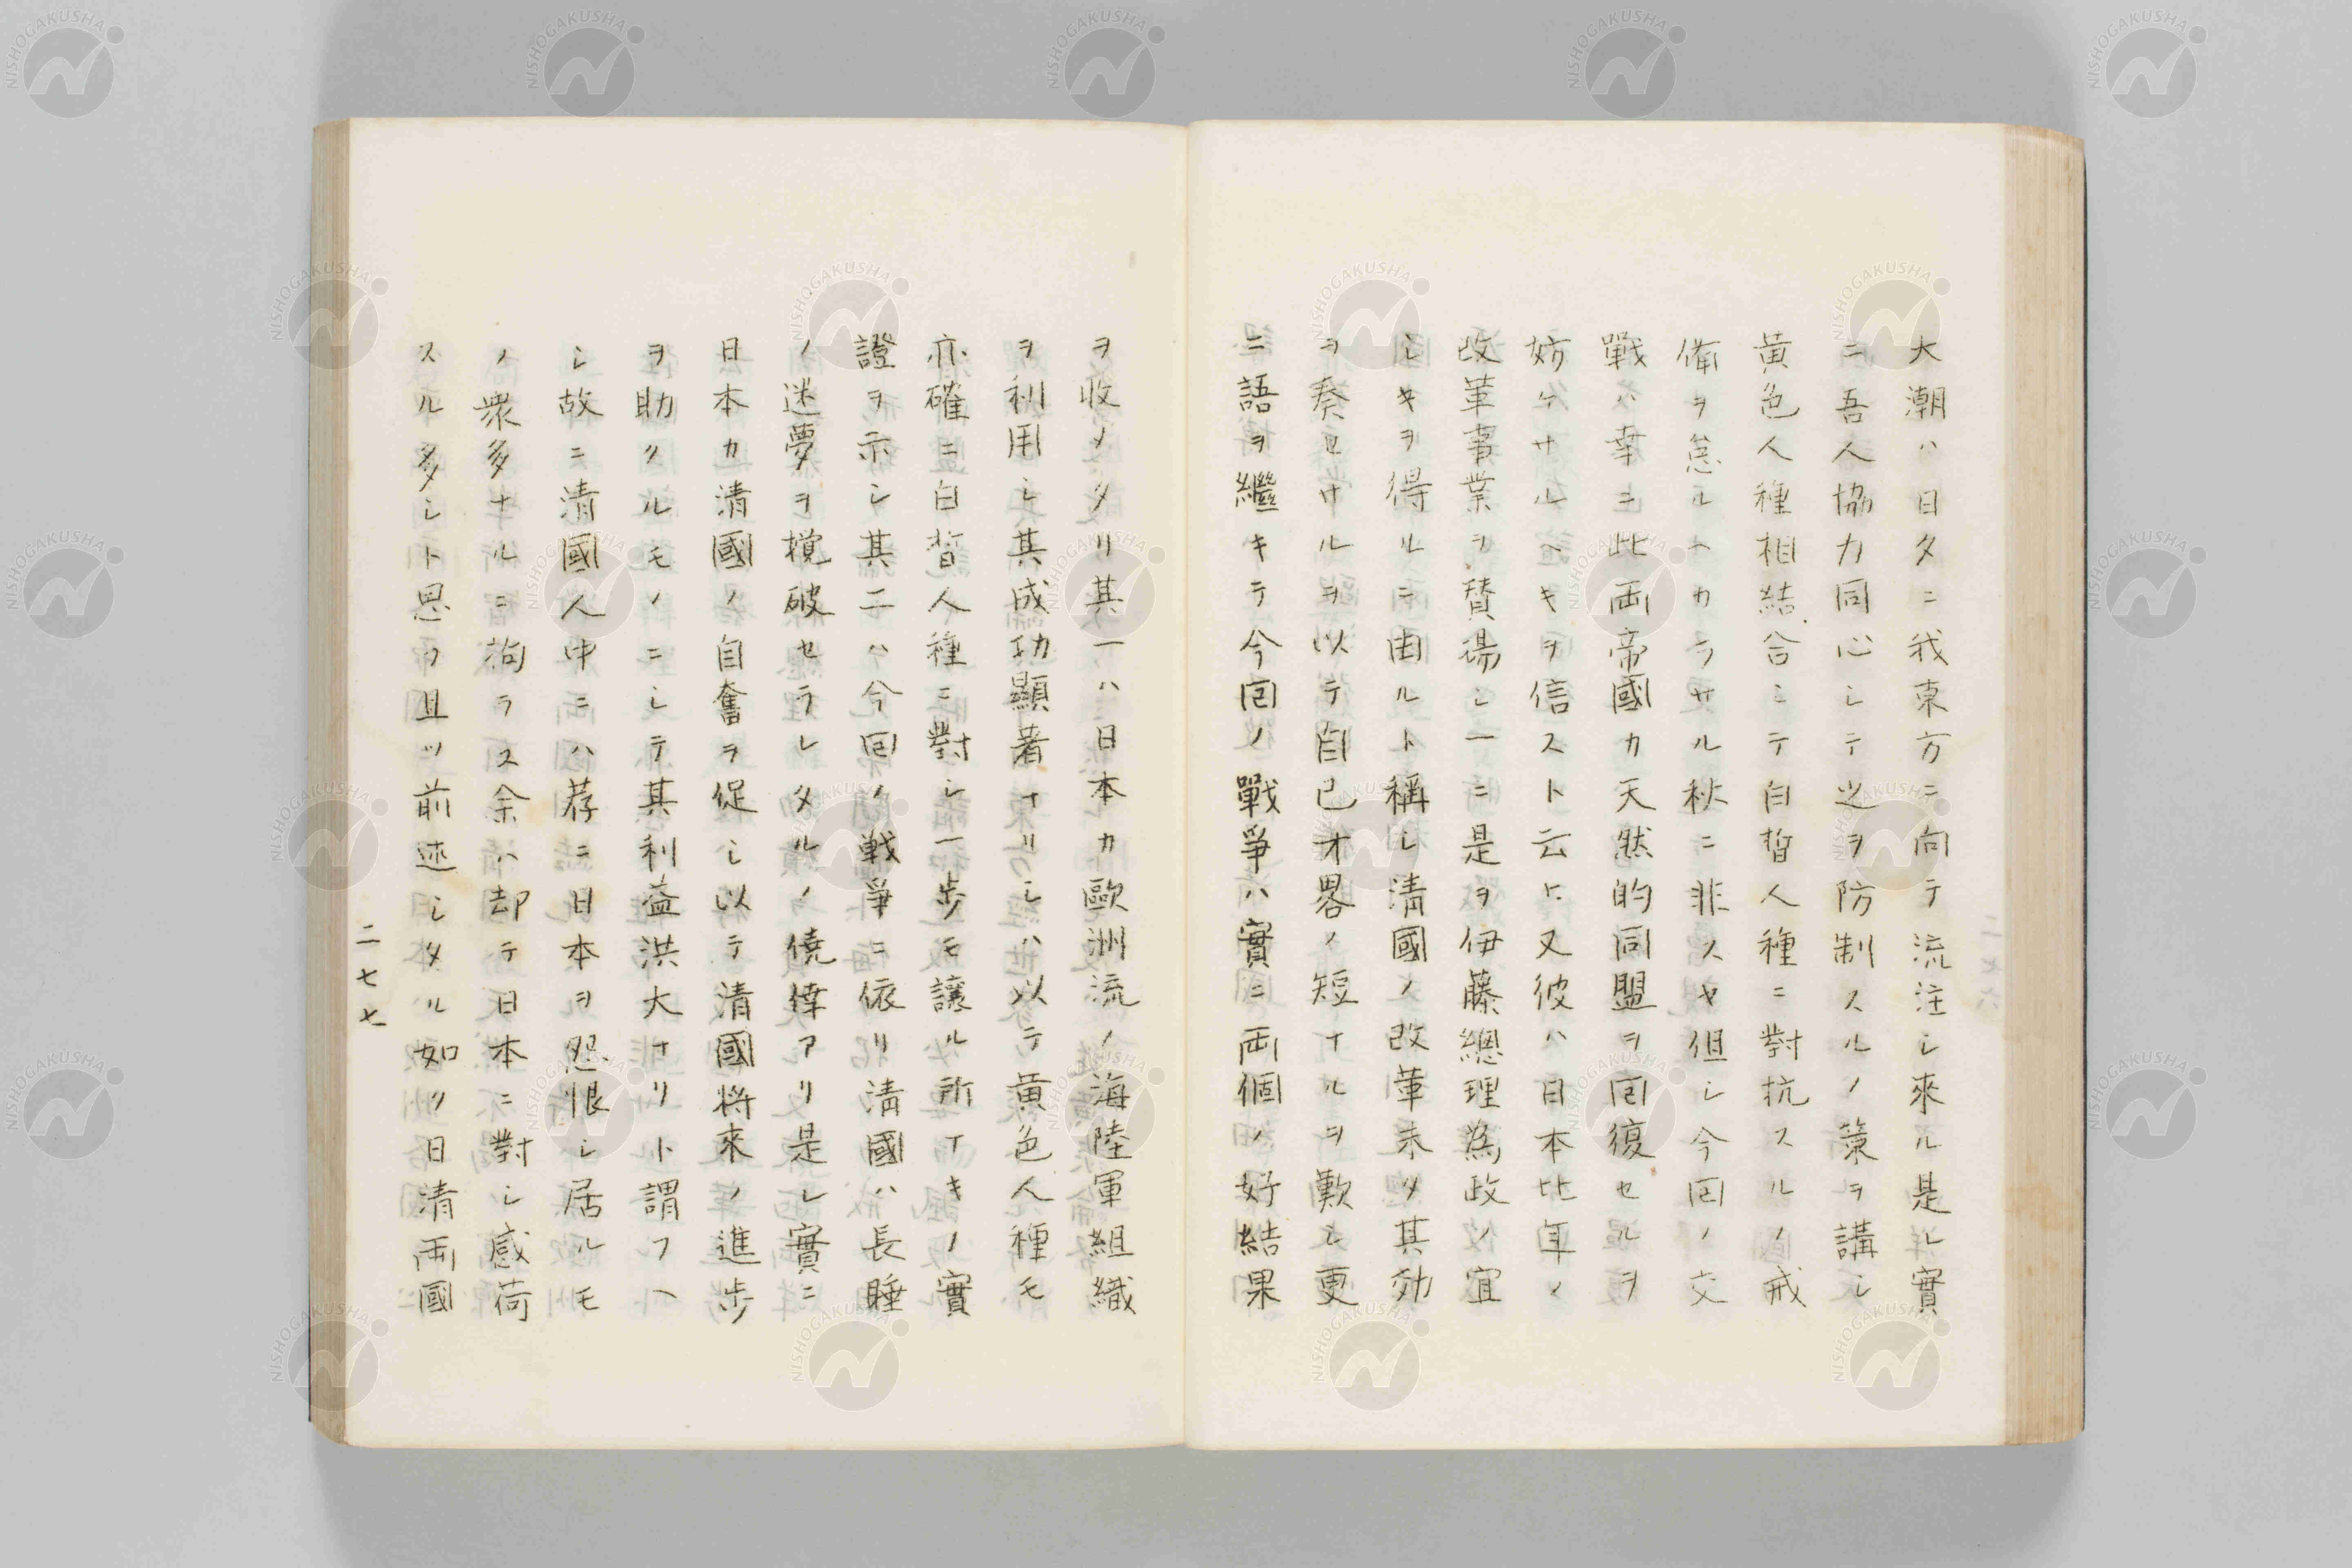 大潮ハ日夕ニ我東方ニ向テ流注シ來ル是レ實
ニ吾人協力同心シテ之ヲ防制スルノ策ヲ講シ
黄色人種相結合シテ白皙人種ニ對抗スルノ戒
備ヲ怠ルヘカラサル秋ニ非スヤ但シ今回ノ交
戰ハ幸ニ此両帝國カ天然的同盟ヲ回復セルヲ
妨ケサルヘキヲ信スト云ヒ又彼ハ日本比年ノ
改革事業ヲ賛揚シ一ニ是ヲ伊藤總理為政ノ宜
シキヲ得ルニ由ルト稱シ清國ノ改革未タ其効
ヲ奏セサルヲ以テ自己才畧ノ短ナルヲ歎シ更
ニ語ヲ繼キテ今回ノ戰爭ハ實ニ両個ノ好結果
ヲ收メタリ其一ハ日本カ歐洲流ノ海陸軍組織
ヲ利用シ其成功顯著ナリシハ以テ黄色人種モ
亦確ニ白皙人種ニ對シ一歩モ讓ル所ナキノ實
證ヲ示シ其二ハ今回ノ戰爭ニ依リ清國ハ長睡
ノ迷夢ヲ攪破セラレタルノ僥倖アリ是レ實ニ
日本カ清國ノ自奮ヲ促シ以テ清國将來ノ進歩
ヲ助クルモノニシテ其利益洪大ナリト謂フヘ
シ故ニ清國人中ニハ荐ニ日本ヲ怨恨シ居ルモ
ノ衆多ナルニ拘ラス余ハ却テ日本ニ對シ感荷
スル多シト思フ且ツ前述シタル如ク日清両國
二七七
NISHOGAKUSHA